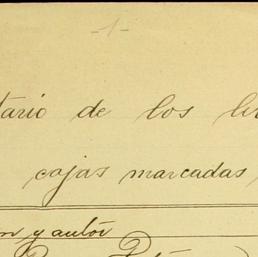 -1-
tario de los li
cajas marcadas,
n y autor